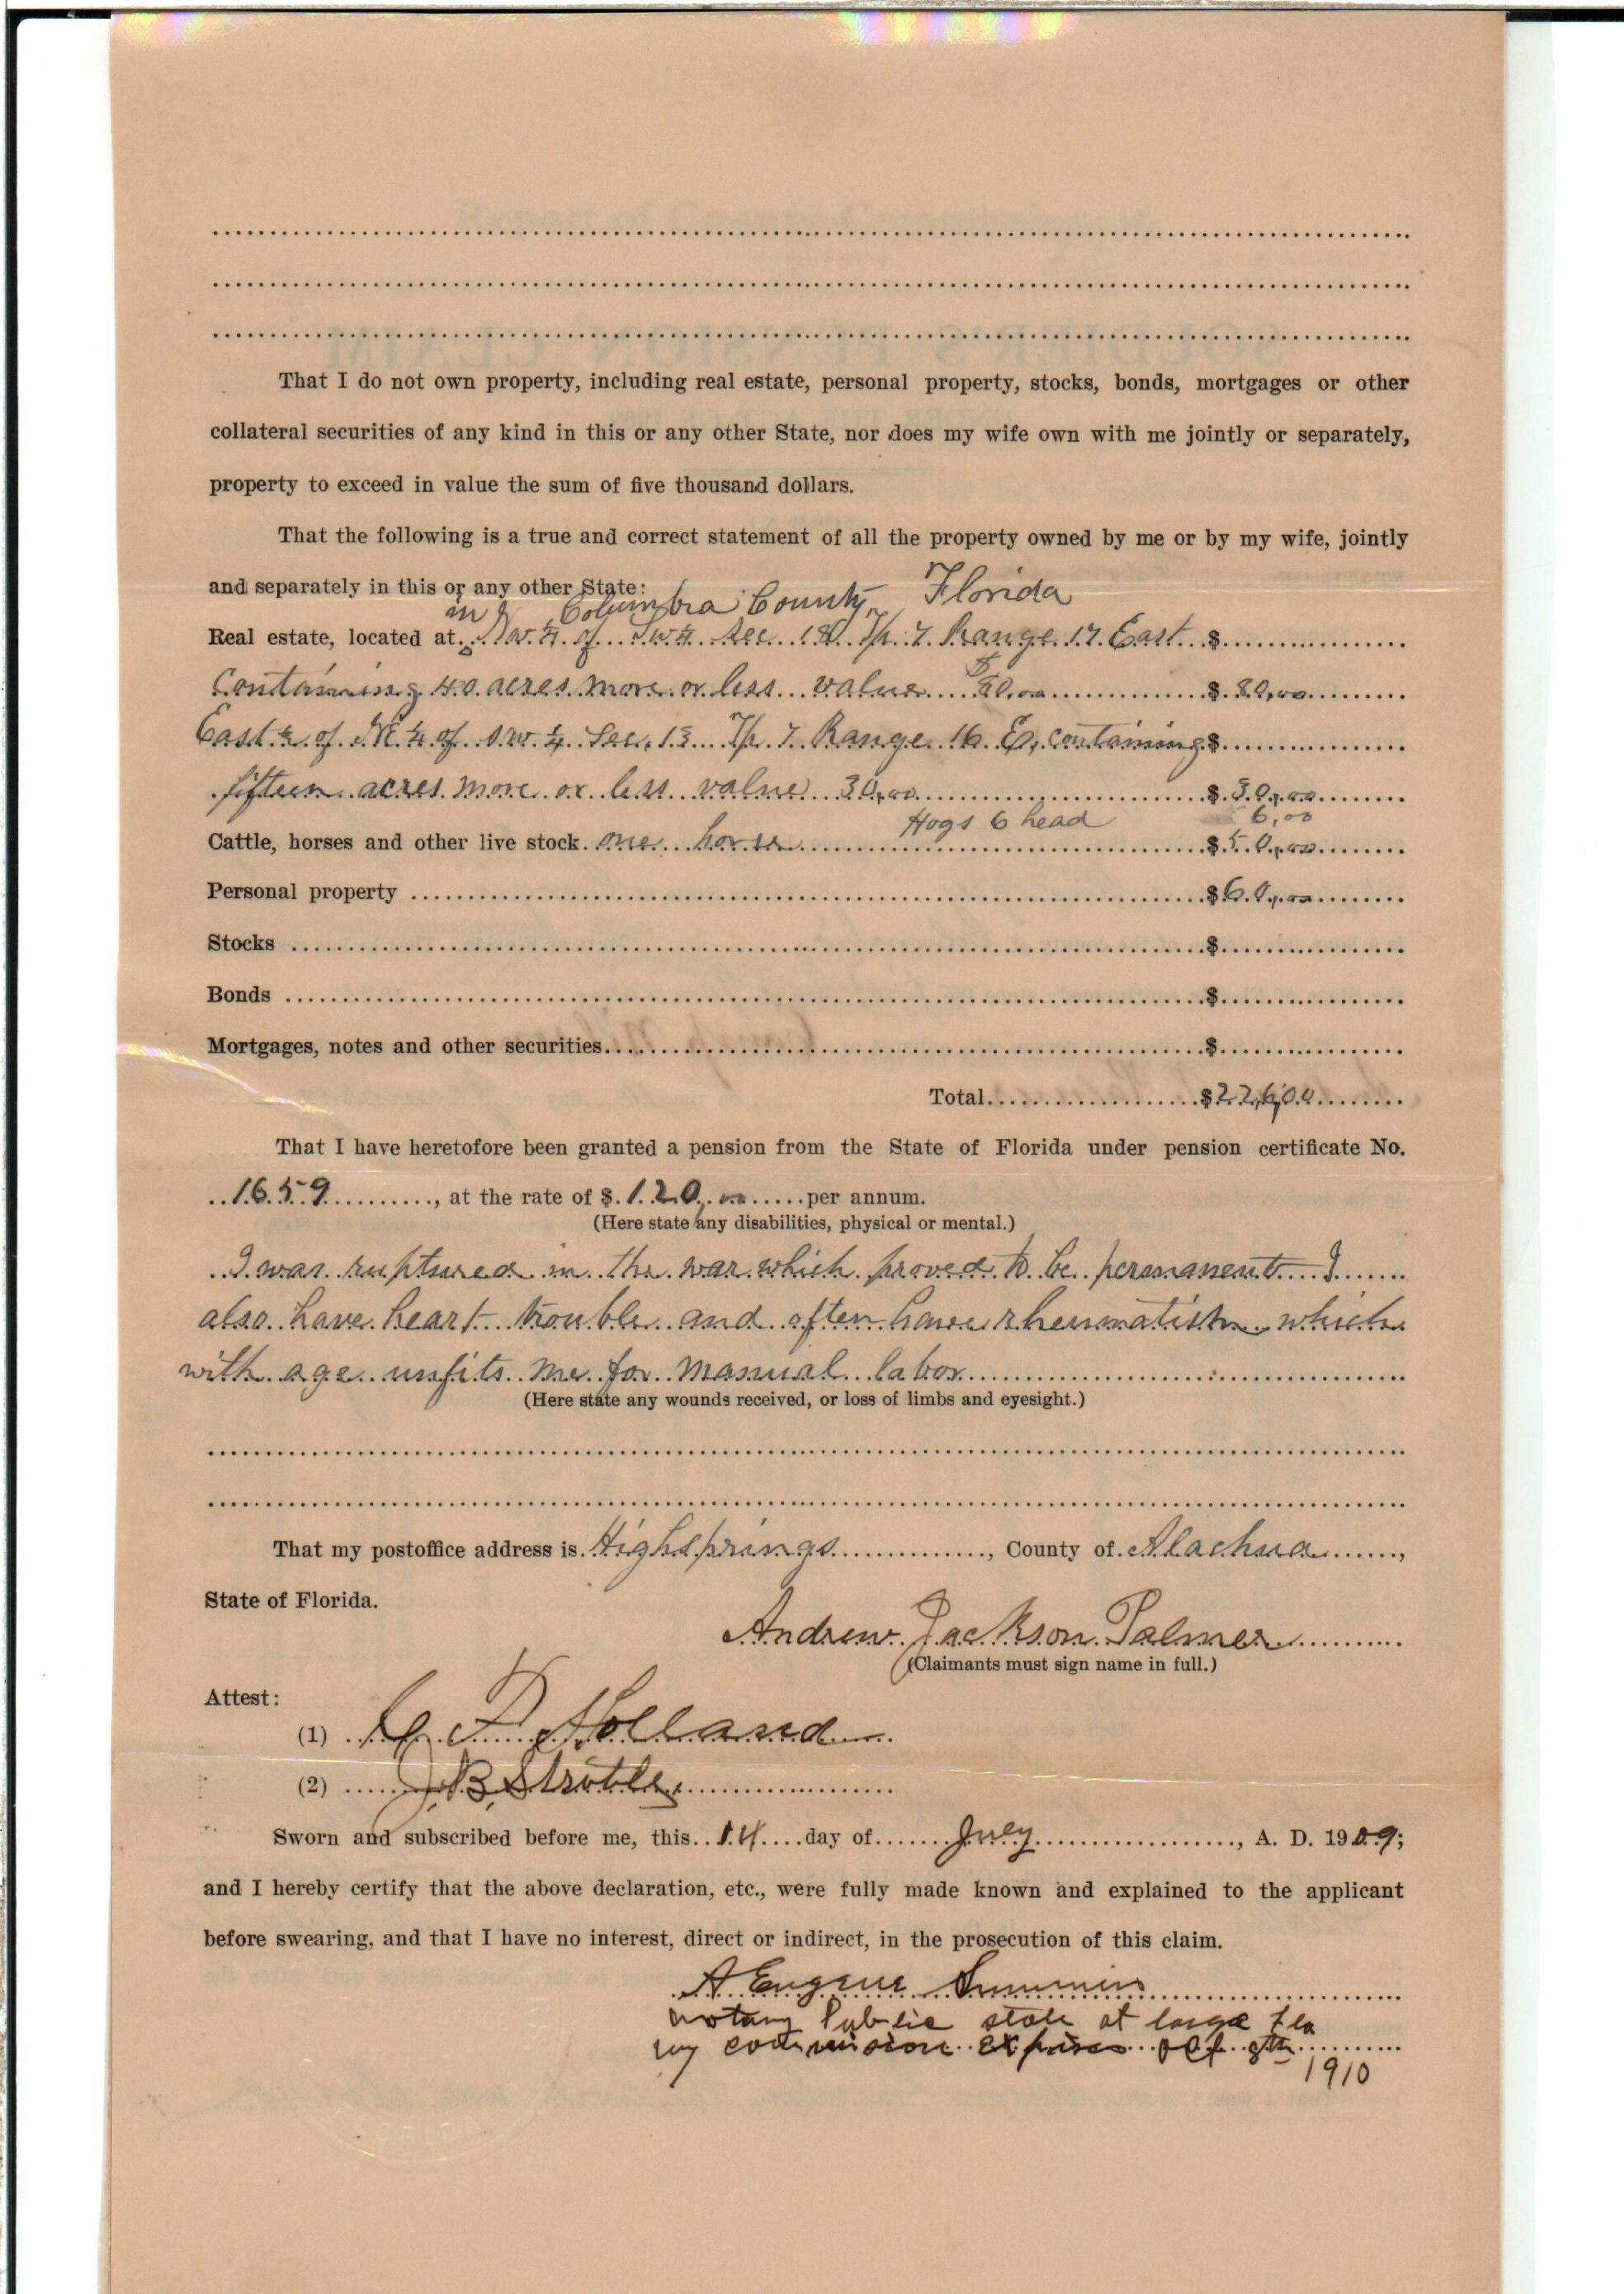 That I do not own property, including real estate, personal property, stocks, bonds, mortgages or other
collateral securities of any kind in this or any other State, nor does my wife own with me jointly or separately,
property to exceed in value the sum of five thousand dollars.
That the following is a true and correct statement of all the property owned by me or by my wife, jointly
and separately in this or any other State:
in Columbia County, Florida
Real estate, located at Nw ¼ of Sw ¼ Sec 18 Tp. 7 Range 17 East $
Containing 40 acres more or less value $80,00 $ 80,00
East ½ of NE ¼ of Sw ¼ Sec. 13 Tp. 7 Range 16 E, containing $
fifteen acres more or less value 30,00 $ 30,00
Hogs 6 head 6,00
Cattle, horses and other live stock one horse $ 50,00
Personal property $ 60,00
Stocks $
Bonds $
Mortgages, notes and other securities $
Total $ 226,00
That I have heretofore been granted a pension from the State of Florida under pension certificate No.
1659, at the rate of $ 120,00 per annum.
(Here state any disabilities, physical or mental.)
I was ruptured in the war which proved to be permanent I
also have heart trouble and often have rheumatism which
with age unfits me for manual labor
(Here state any wounds received, or loss of limbs and eyesight.)
That my postoffice address is Highsprings, County of Alachua,
State of Florida.
Andrew Jackson Palmer
(Claimants must sign name in full.)
Attest:
(1) Holland
(2) J. B. Stroble
Sworn and subscribed before me, this 14 day of July, A. D. 1909;
and I hereby certify that the above declaration, etc., were fully made known and explained to the applicant
before swearing, and that I have no interest, direct or indirect, in the prosecution of this claim.
A Eugene Summers
notary Public state at large Fla
my commission expires Oct 8th
1910